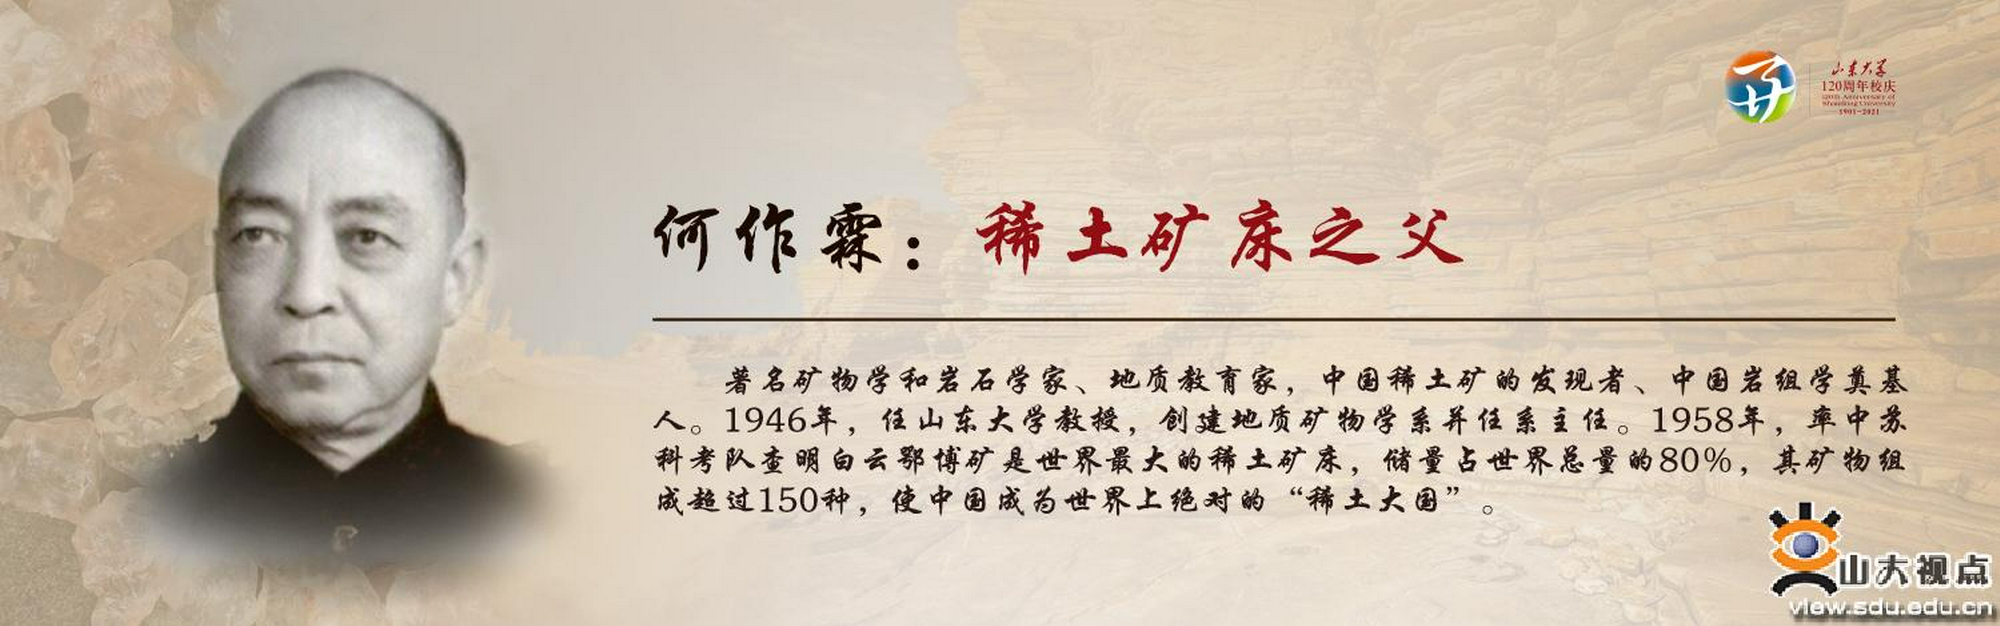 山东大学
120周年校庆
120th Anniversary of
Shandong University
1901-2021
何作霖：稀土矿床之父
著名矿物学和岩石学家、地质教育家，中国稀土矿的发现者、中国岩组学奠基
人。1946年，任山东大学教授，创建地质矿物学系并任系主任。1958年，率中苏
科考队查明白云鄂博矿是世界最大的稀土矿床，储量占世界总量的80%，其矿物组
成超过150种，使中国成为世界上绝对的“稀土大国”。
山大视点
view.sdu.edu.cn